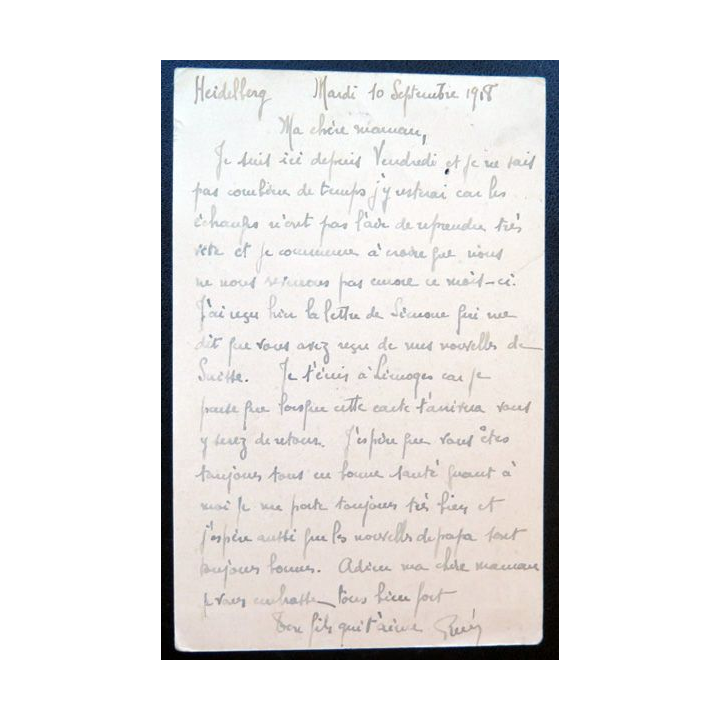 Heidelberg Mardi 10 Septembre 1918
Ma chère maman,
Je suis ici depuis Vendredi et je ne sais
pas combien de temps j'y resterai car les
échanges n'ont pas l'air de reprendre très
vite et je commence à croire que nous
ne nous reverrons pas encore ce mois-ci.
J'ai reçu hier la lettre de Simone qui me
dit que vous avez reçu de mes nouvelles de
Suisse. Je t'écris à Limoges car je
pense que lorsque cette carte t'arrivera vous
y serez de retour. J'espère que vous êtes
toujours tous en bonne santé quant à
moi je me porte toujours très bien et
j'espère aussi que les nouvelles de papa sont
toujours bonnes. Adieu ma chère maman
je vous embrasse tous bien fort
Ton fils qui t'aime